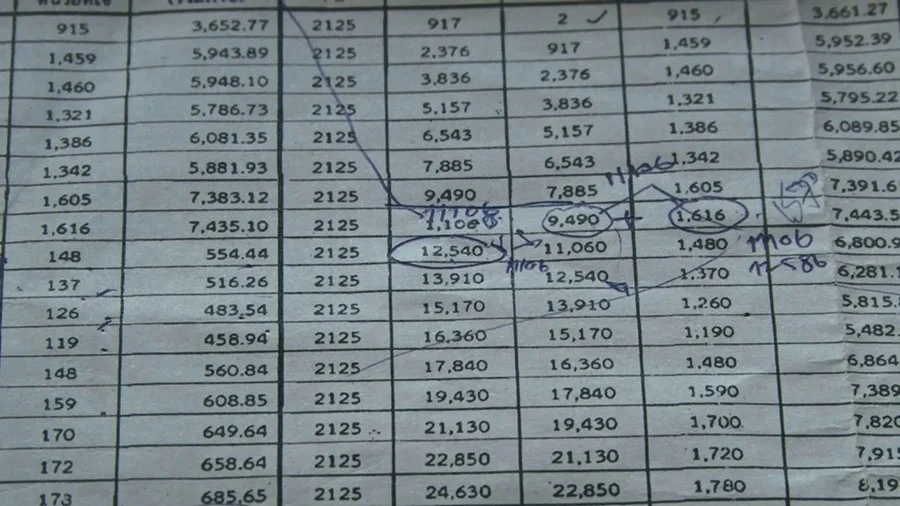 915 3,652.77 2125 917 2 915 3,661.27
1,459 5,943.89 2125 2,376 917 1,459 5,952.39
1,460 5,948.10 2125 3,836 2,376 1,460 5,956.60
1,321 5,786.73 2125 5,157 3,836 1,321 5,795.22
1,386 6,081.35 2125 6,543 5,157 1,386 6,089.85
1,342 5,881.93 2125 7,885 6,543 1,342 5,890.42
11106
1,605 7,383.12 2125 9,490 7,885 1,605 7,391.6
11106
1,616 7,435.10 2125 1,106 9,490 1,616 7,443.5
148 554.44 2125 12,540 11,060 1,480 11106 6,800.9
11106 12586
137 516.26 2125 13,910 12,540 1,370 6,281.1
126 483.54 2125 15,170 13,910 1,260 5,815.8
119 458.94 2125 16,360 15,170 1,190 5,482.
148 560.84 2125 17,840 16,360 1,480 6,864
159 608.85 2125 19,430 17,840 1,590 7,389
170 649.64 2125 21,130 19,430 1,700 7,820
172 658.64 2125 22,850 21,130 1,720 7,915
173 685.65 2125 24,630 22,850 1,780 8,19